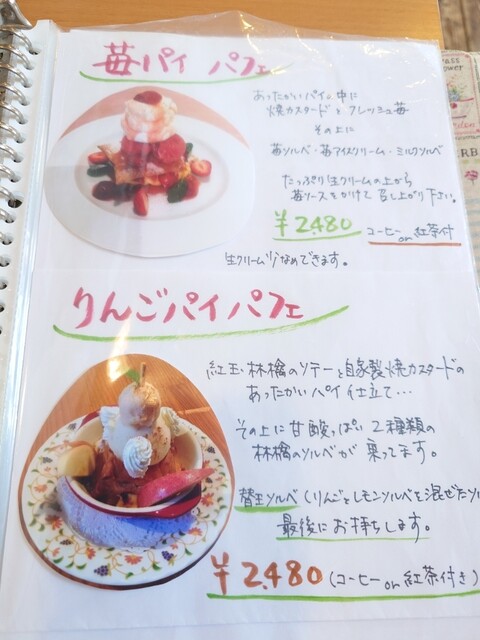 苺パイ パフェ
あったかいパイの中に
焼カスタードと フレッシュ苺
その上に
苺ソルベ・苺アイスクリーム・ミルクソルベ
たっぷり生クリームの上から
苺ソースをかけて 召し上がり下さい。
¥2,480 コーヒー or 紅茶付
生クリーム少なめできます。
りんごパイパフェ
紅玉林檎のソテーと自家製焼カスタードの
あったかいパイ仕立て…
その上に甘酸っぱい2種類の
林檎のソルベが乗ってます。
替玉ソルベ(りんごとレモンソルベを混ぜたソル
最後にお持ちします。
¥2,480 (コーヒー or 紅茶付き)